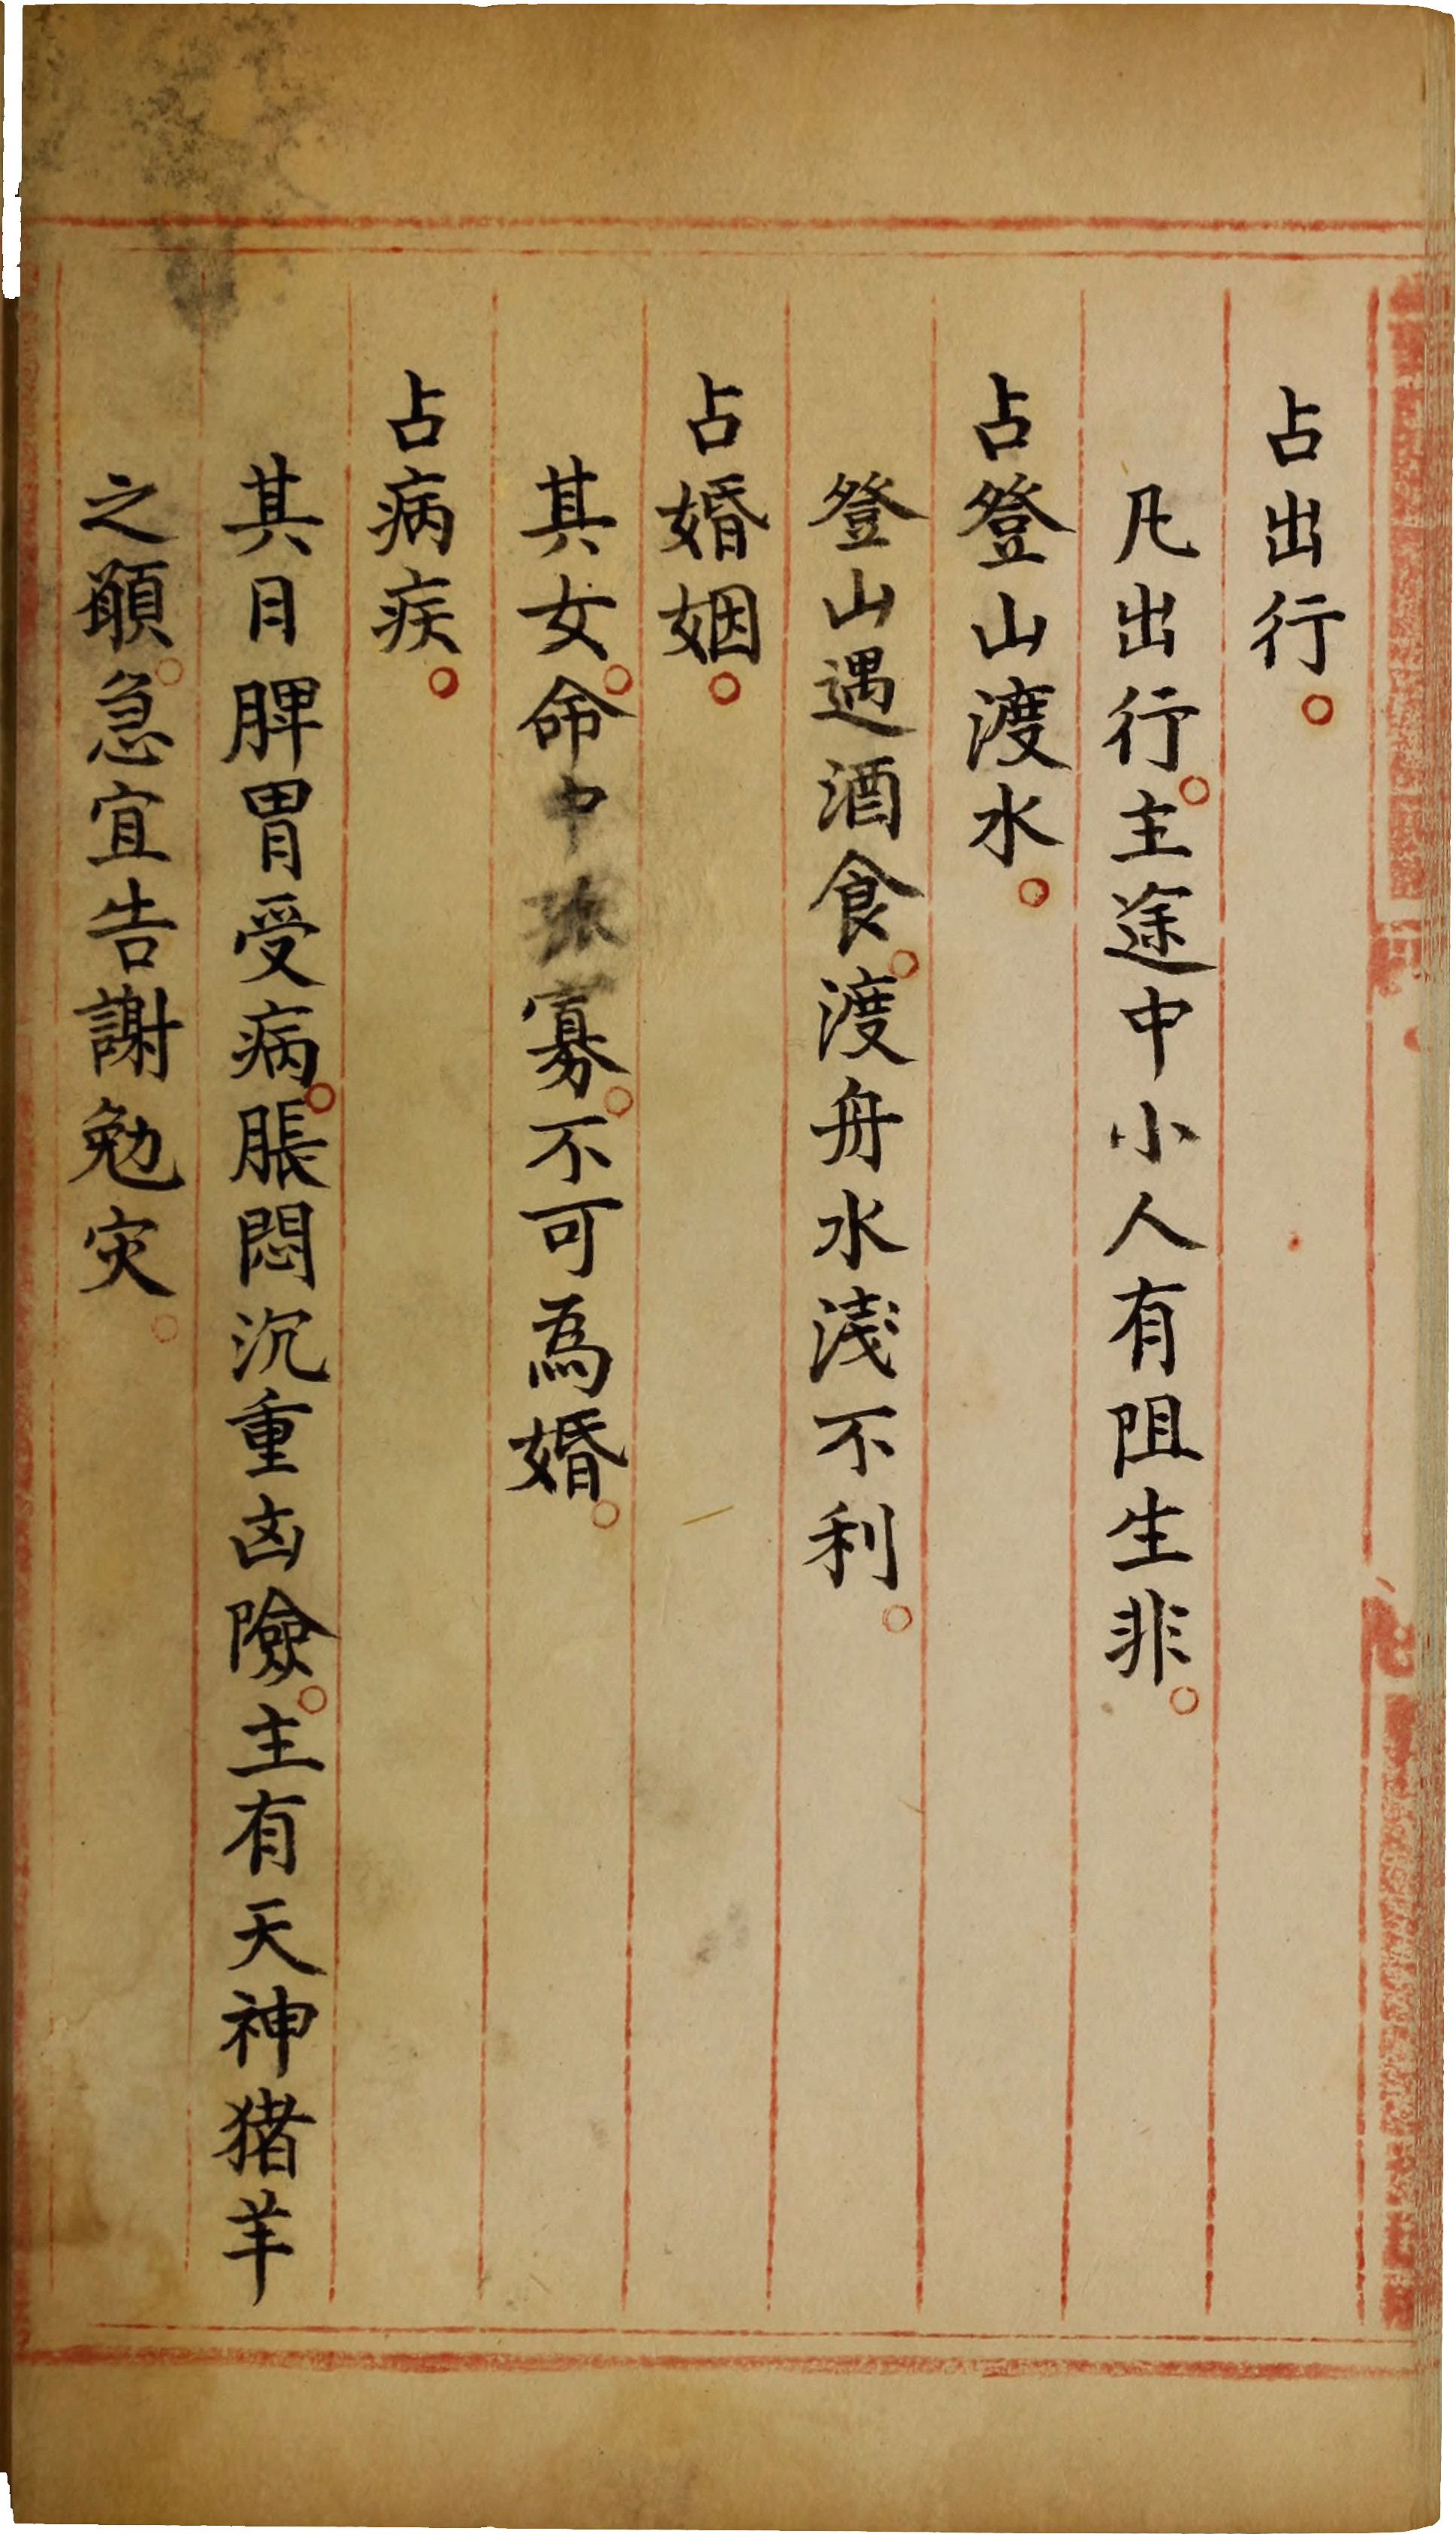 占出行。
凡出行。主途中小人有阻生非。
占登山渡水。
登山遇酒食。渡舟水淺不利。
占婚姻。
其女。命中孤寡。不可為婚。
占病疾。
其目脾胃受病。脹悶沉重凶險。主有天神猪羊
之願。急宜告謝勉灾。